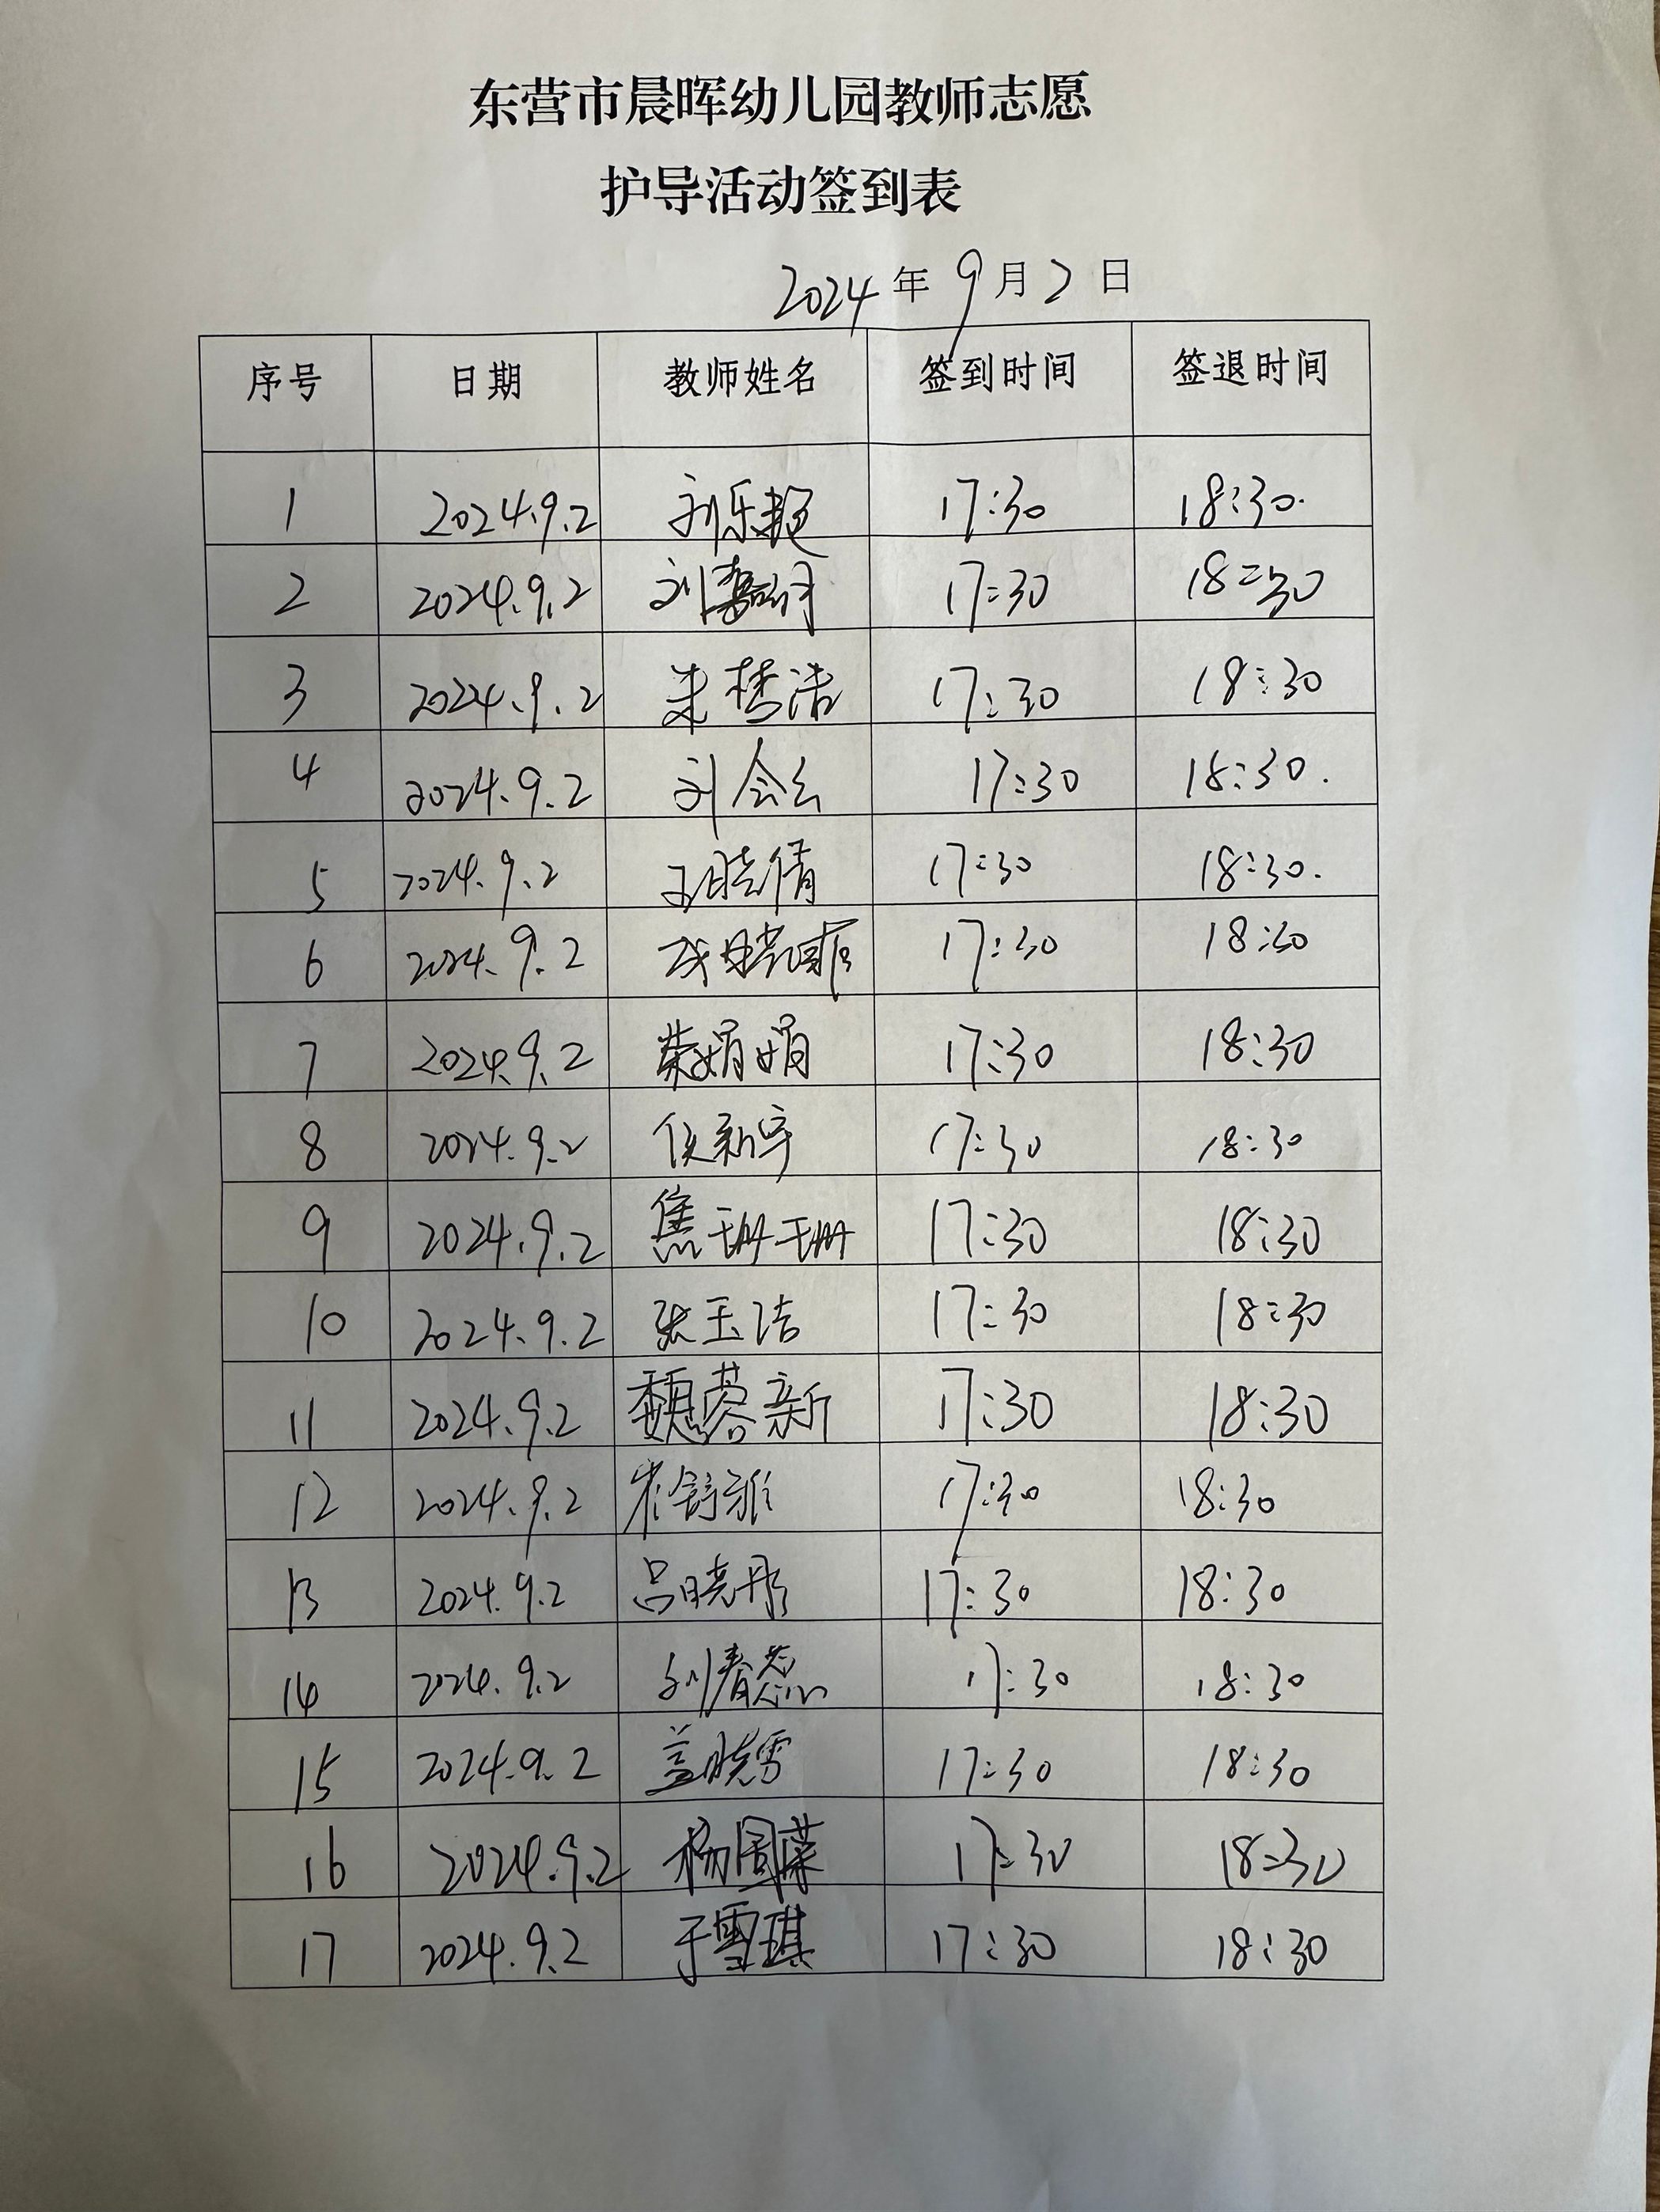 东营市晨晖幼儿园教师志愿
护导活动签到表
2024年9月2日
序号 日期 教师姓名 签到时间 签退时间
1 2024.9.2 刘乐超 17:30 18:30
2 2024.9.2 刘嘉 17:30 18:30
3 2024.9.2 朱梦洁 17:30 18:30
4 2024.9.2 刘会云 17:30 18:30
5 2024.9.2 王晓倩 17:30 18:30
6 2024.9.2 17:30 18:30
7 2024.9.2 荣娟娟 17:30 18:30
8 2024.9.2 侯新宇 17:30 18:30
9 2024.9.2 焦珊珊 17:30 18:30
10 2024.9.2 张玉洁 17:30 18:30
11 2024.9.2 魏蓉新 17:30 18:30
12 2024.9.2 崔舒雅 17:30 18:30
13 2024.9.2 吕晓彤 17:30 18:30
14 2024.9.2 刘春蕊 17:30 18:30
15 2024.9.2 盖晓雪 17:30 18:30
16 2024.9.2 杨国菜 17:30 18:30
17 2024.9.2 于雪琪 17:30 18:30